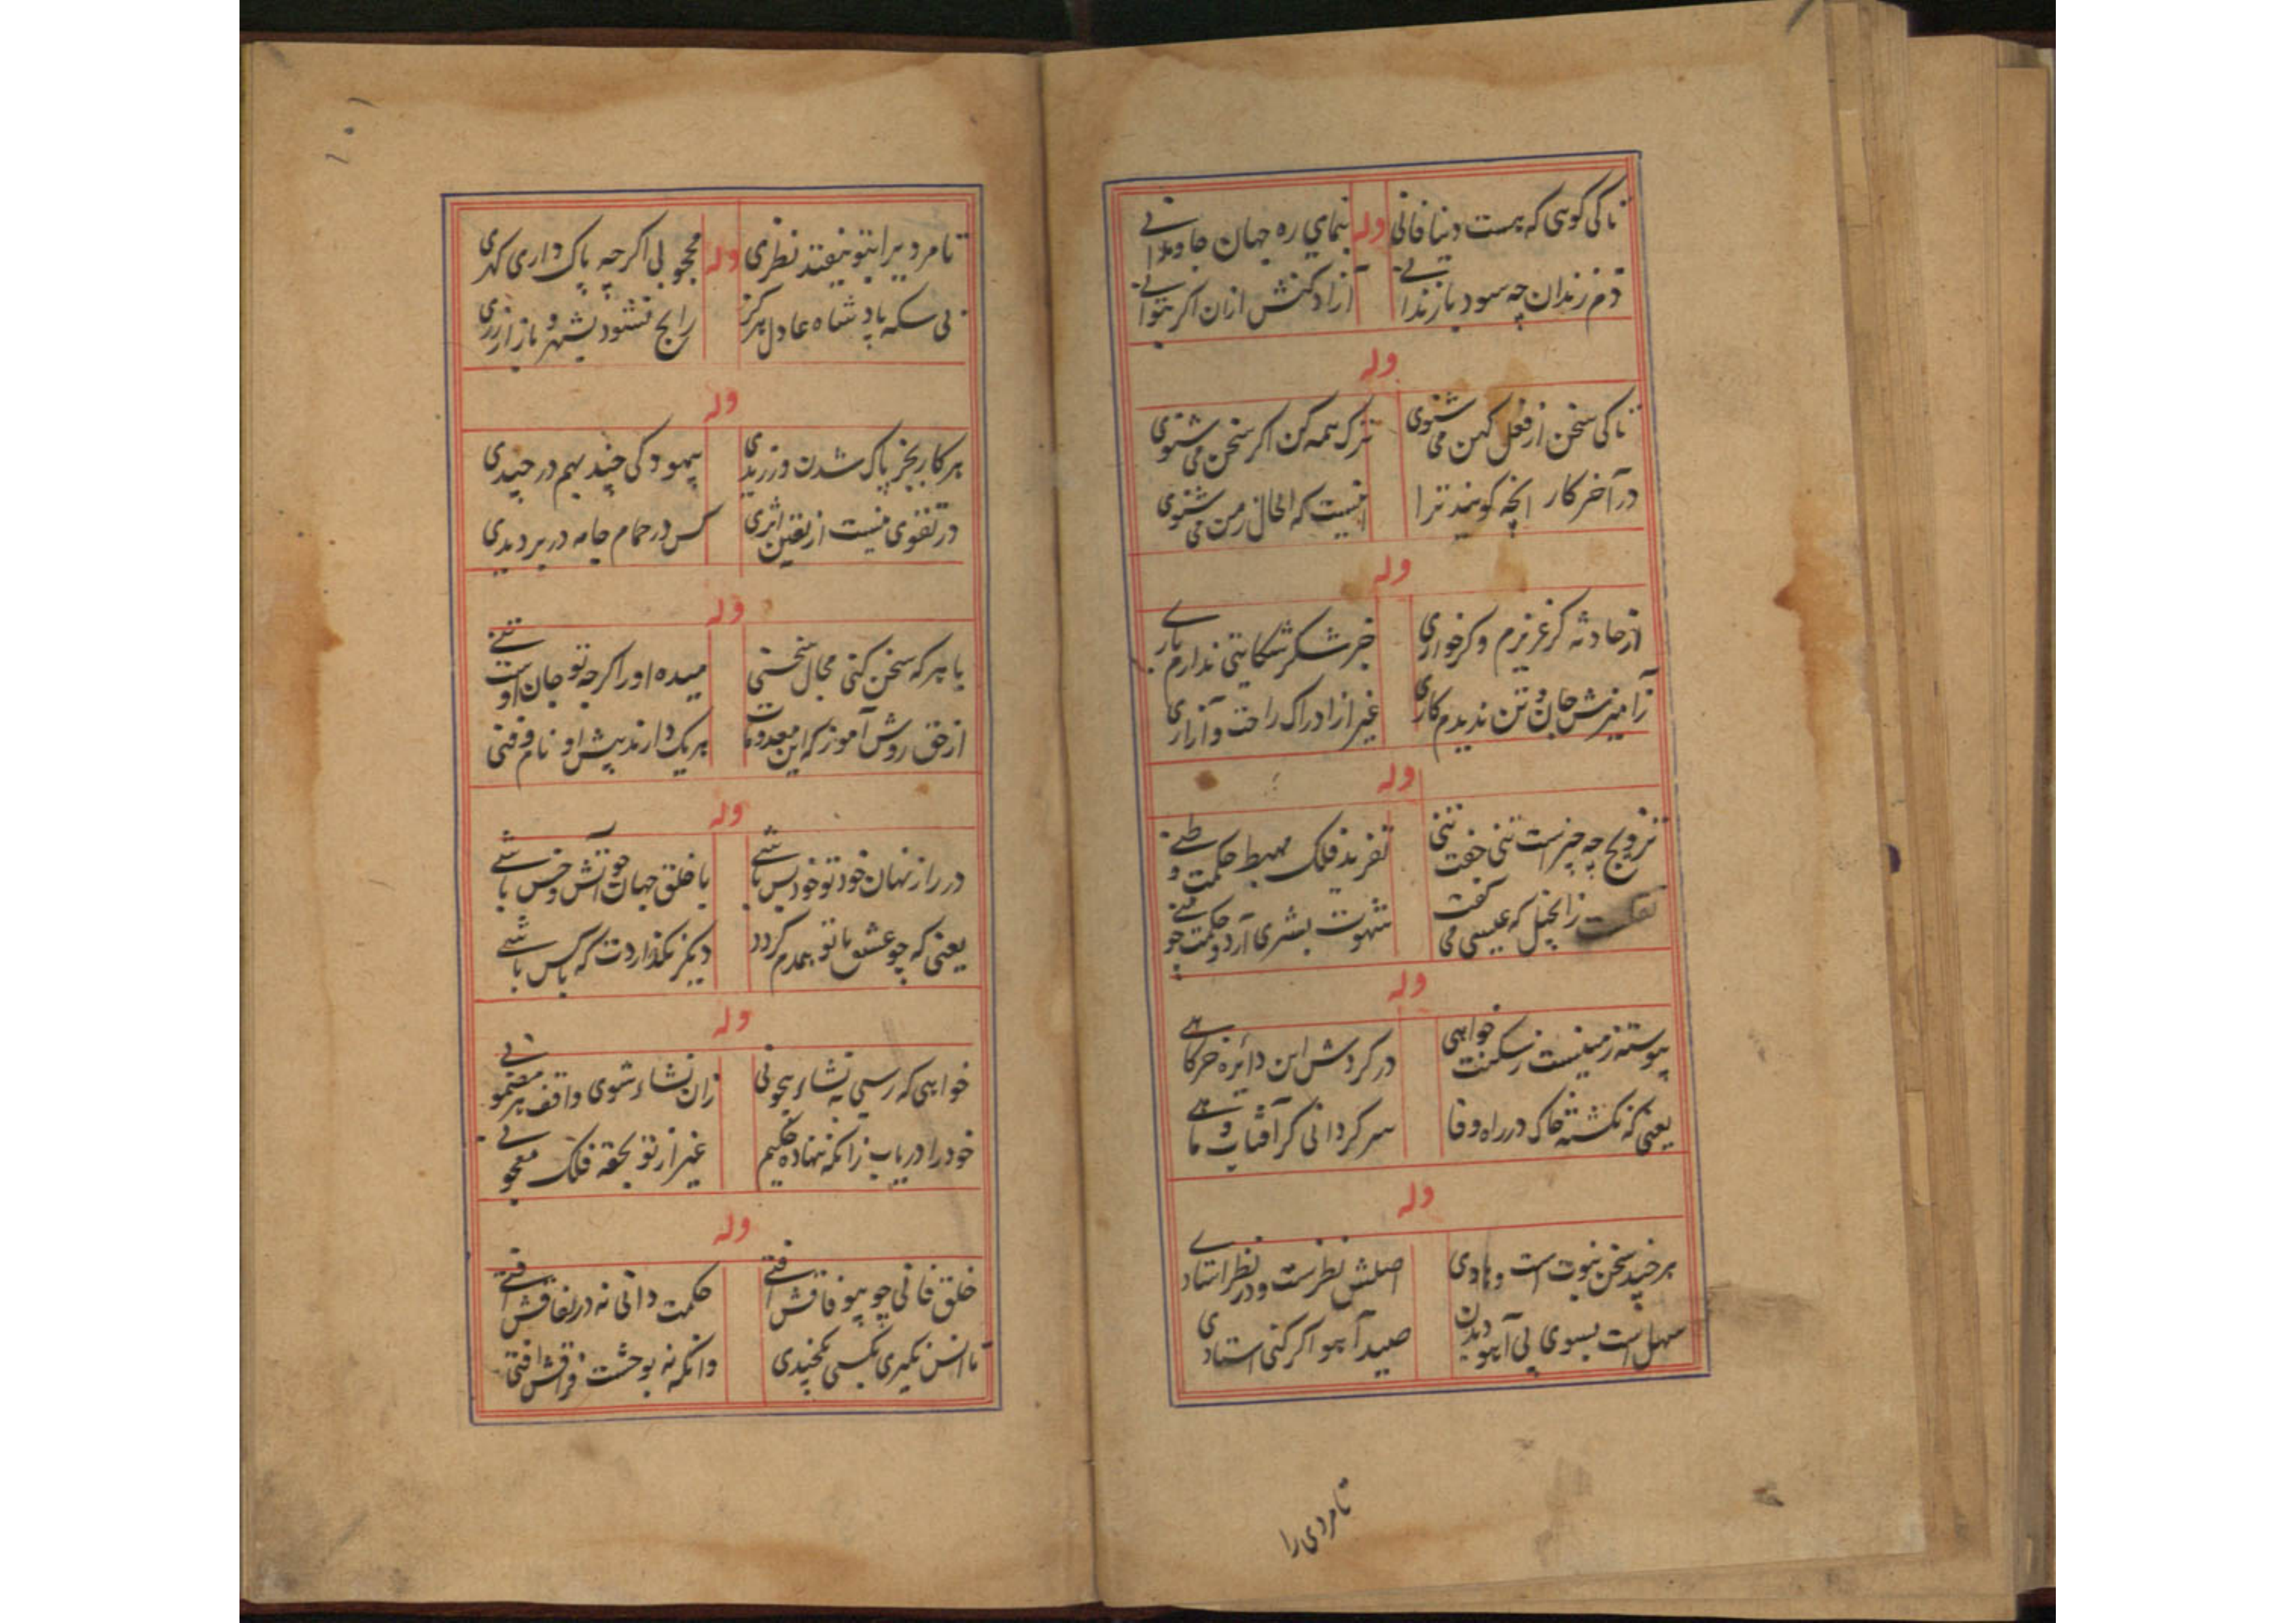 تا کی گوئی که هست دنیا فانی وله بنمای ره جهان جاویدانی
در زندان چه سود با زندانی آزاد کنش ازان اگر بتوانی
وله
تا کی سخن از فعل کهن می شنوی ترک همه کن اگر سخن می شنوی
در آخر کار انچه گویند ترا اینست که الحال ز من می شنوی
وله
از حادثه گر عزیزم و گر خواری جز شکر شکایتی ندارم باری
ز آمیزش جان و تن ندیدم کاری غیر از ادراک راحت و آزاری
وله
تزویج چه چیز است تنی جفت تنی تفرید فلک مهبط حکمت وطنی
ز انجیل که عیسی می گفت شهوت بشری آرد و حکمت چو منی
وله
پیوسته زمینست ز سکنت خواهی در گردش این دائره خرگاهی
یعنی که نگشته خاک در راه وفا سرگردانی گر آفتاب و ماهی
وله
هر چند سخن نبوت است و هادی اصلش نظرست و در نظر استادی
سهل است بسوی پی آهو دیدن صید آهو اگر کنی استادی
تا مردی را
۱۰۱
تا مردیرا بتو نیفتد نظری وله محجوبی اگرچه پاک داری گهری
بی سکه پادشاه عادل هرگز رایج نشود بشهر و بازار زری
وله
هر کار بجز پاک شدن ورزیدی بیهودگی چند بهم در چیدی
در تقوی نیست از تعین اثری کس در حمام جامه در بر دیدی
وله
با هر که سخن کنی مجال سخنی میده او را اگرچه تو جان اوست تنی
از حق روش آموز که این معدومات هر یک دارند پیش او نام و فنی
وله
در راز نهان خود تو خود بس باشی با خلق جهان چو آتش و خس باشی
یعنی که چو عشق با تو همدم گردد دیگر نگذاردت که با کس باشی
وله
خواهی که رسی به نشاء بیچونی زان نشاء شوی واقف هر مضمونی
خود را دریاب زانکه ننهاده حکیم غیر از تو بحقه فلک معجونی
وله
خلق فانی چو بیوفاقش افتی حکمت دانی نه در نفاقش افتی
تا انس نگیری بکسی نگزیدی وانگه نه بوحشت فراقش افتی